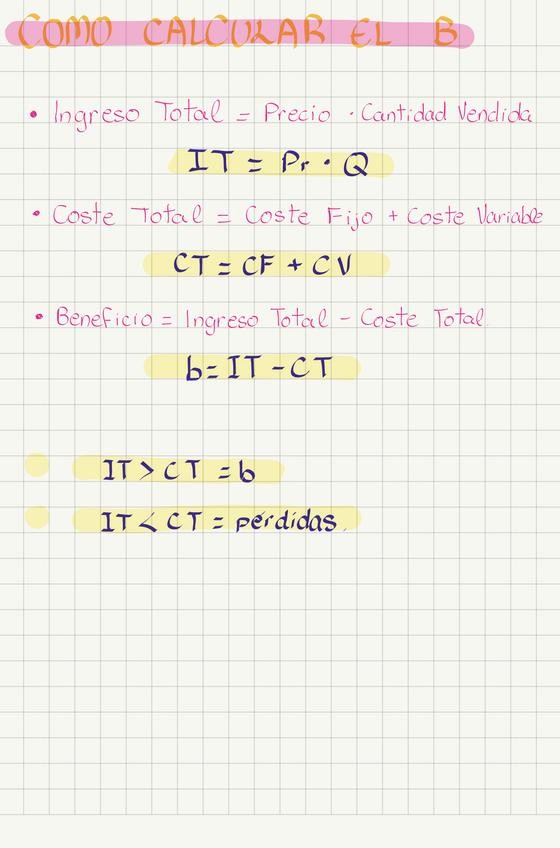 COMO CALCULAR EL B
• Ingreso Total = Precio · Cantidad Vendida
IT = Pr · Q
• Coste Total = Coste Fijo + Coste Variable
CT = CF + CV
• Beneficio = Ingreso Total - Coste Total
b = IT - CT
IT > CT = b
IT < CT = pérdidas.